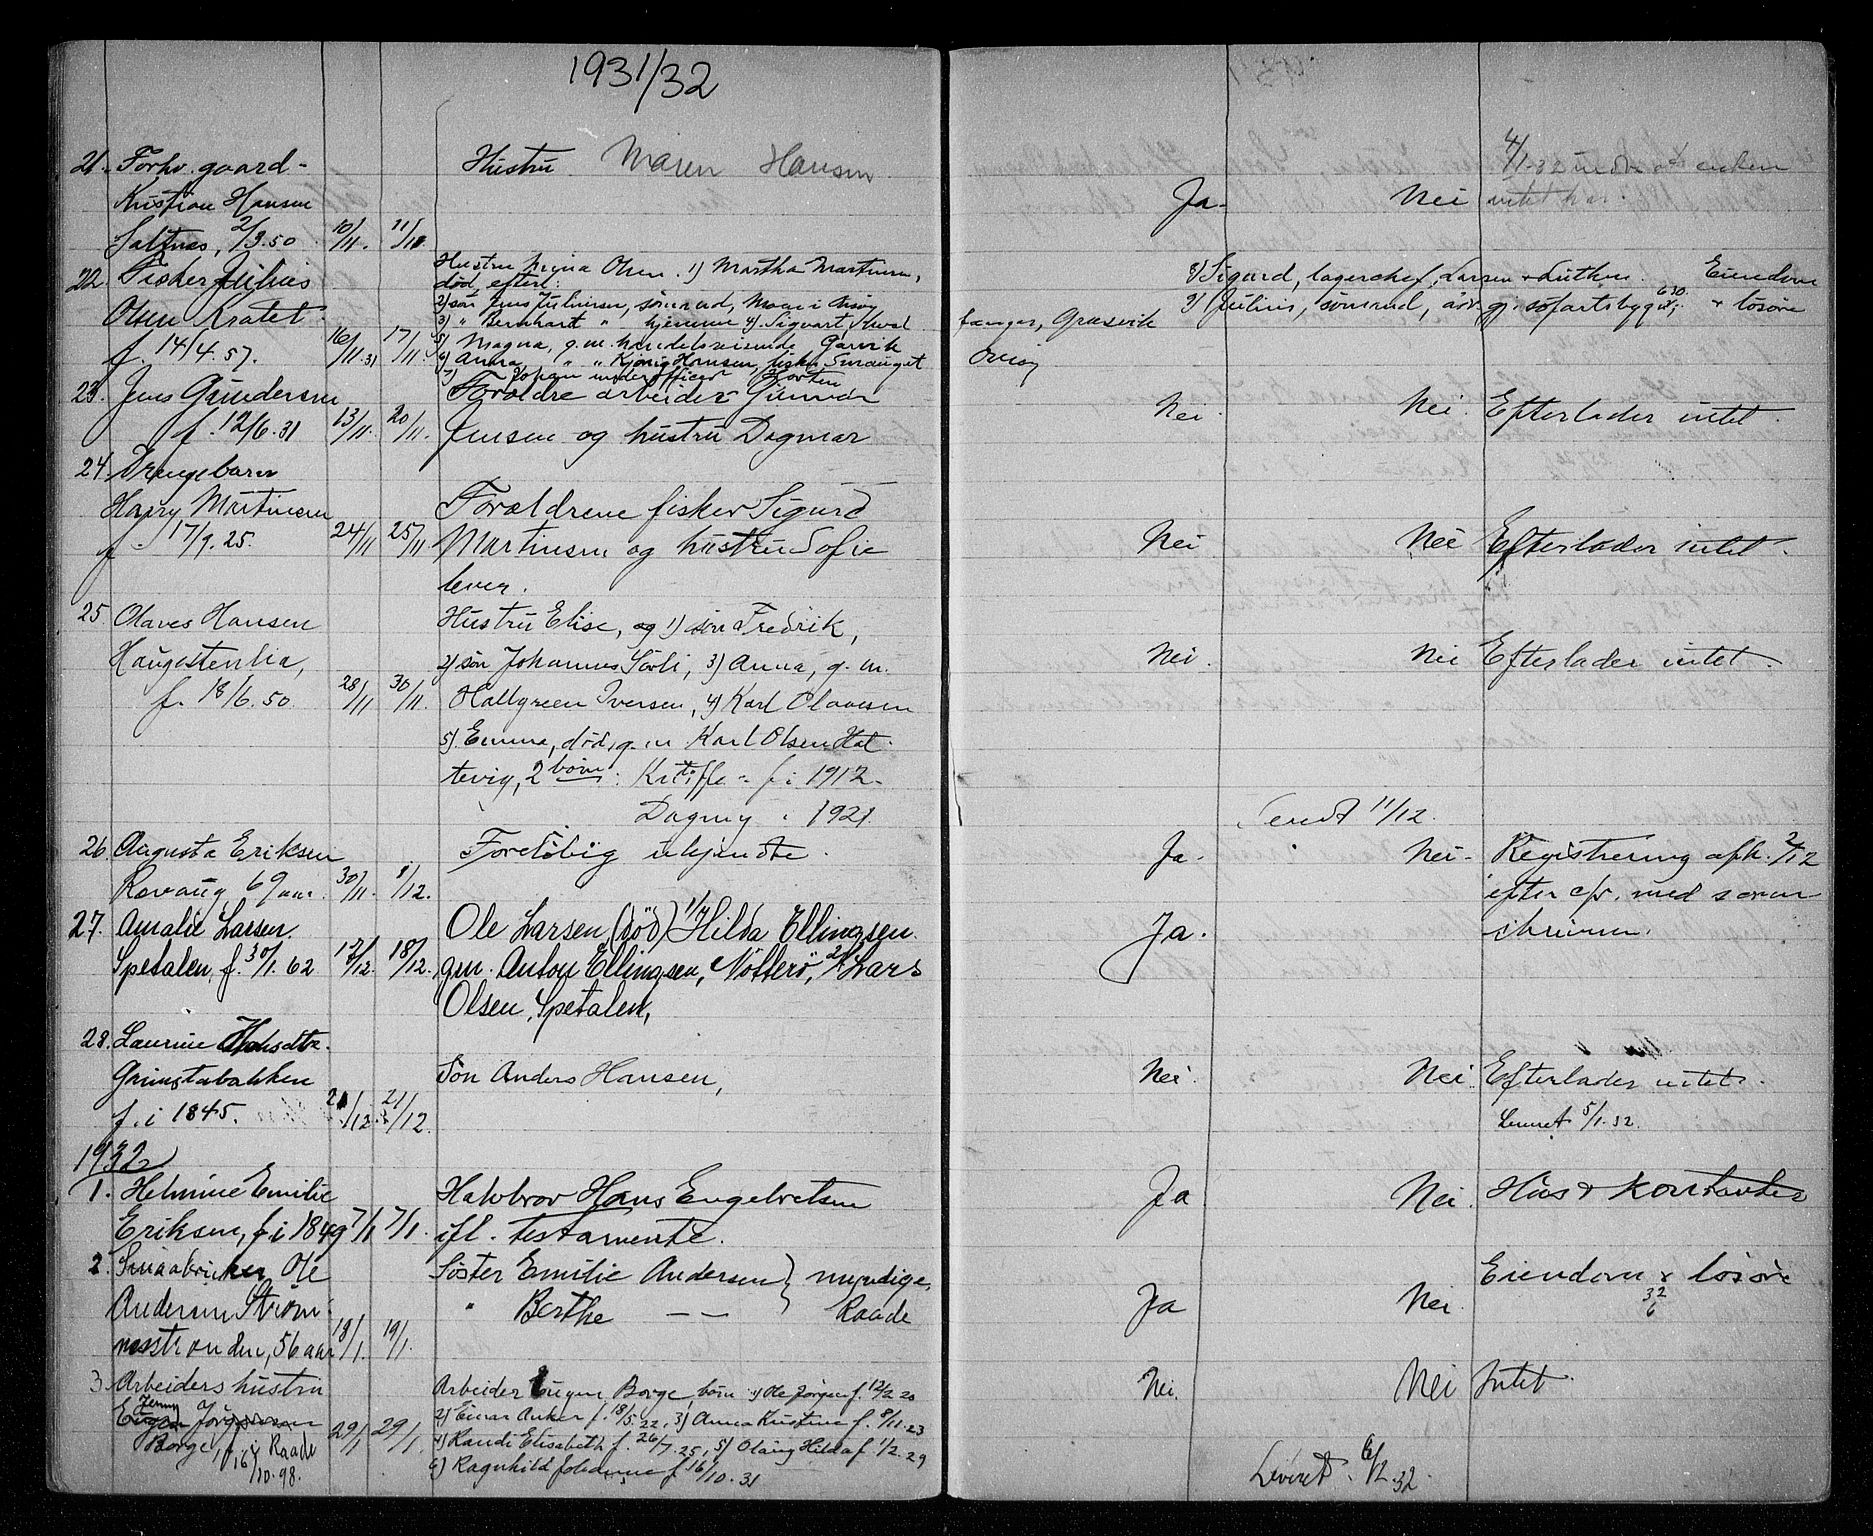 1931/32
21. Forhv. gaard-
Kristian Hansen
Saltnes, 2/3.50 10/11. 11/11.
Hustru Maren Hansen
Ja. Nei
4/1-32 enken
intet har.
22 Fisker Julius
Olsen Kratet.
f. 14/4.57. 16/11.31 17/11.
Hustru Olsen. 1) Martha Martinsen,
død, efterl:
2) søn Jens Juliussen, sømand,
3) " Bernhard " hjemme 4) Sigvart
5) Magna, g.m. handelsreisende
6) Anna " " Hansen, fisker
7) Johan underofficer Horten
fanger, Græsvik
Onsøy
8) Sigurd, lagerchef, Larsen & Luthen. Eiendom
9) Julius, sømand, & løsøre
23. Jens Gundersen
f. 12/6.31 13/11. 20/11.
Forældre arbeider Gunnar
Jensen og hustru Dagmar
Nei. Nei. Efterlader intet.
24. Drengebarn
Harry Martinsen
f. 17/9.25. 24/11 25/11
Forældrene fisker Sigurd
Martinsen og hustru Sofie
lever.
Nei Nei Efterlader intet.
25 Olaves Hansen
Haugestenlia,
f. 18/6.50 28/11 30/11.
Hustru Elise, og 1) søn Fredrik,
2) søn Johannes Sørli, 3) Anna, g.m.
Hallgreen Iversen, 4) Karl Olavesen
5) Emma, død, g.m. Karl Olsen Hal-
tevig, 2 børn: f. i 1912.
Dagny " 1921.
Nei. Nei Efterlader intet.
Sendt 11/12.
26. Augusta Eriksen
Rovaug 69 aar. 30/11. 1/12.
Foreløbig ukjendte
Ja. Nei. Registrering afh. 2/12
efter c/o. med soren
skriveren.
27. Amalie Larsen.
Spetalen, f. 30/1.62 17/12. 18/12.
Ole Larsen (død) 1/ Hilda Ellingsen.
gm. Anton Ellingsen, Nötterö, 2/ Lars
Olsen, Spetalen,
Ja.
28. Laurine
Grimstabakken
f. i 1845. 21/12. 21/12.
Søn Anders Hansen,
Nei. Nei. Efterlader intet.
Leveret 5/1.32.
1932
1. Helmine Emilie
Eriksen, f. i 1849 7/1 7/1.
Halvbror Hans Engelretsen
ifl. testamente.
Ja Nei. Hus & kontanter
2. Smaabruker Ole
Andersen Strøm-
nesstranden, 56 aar 18/1. 19/1.
Søster Emilie Andersen } myndige,
" Berthe — — Raade
Ja Nei. Eiendom & løsøre
32
6
3. Arbeiders hustru
Jenny
Eugen Jörgensen
Borge, f. i Raade 29/1 29/1.
16/10.98.
Arbeider Eugen Borge, børn 1) Ole Jørgen f. 12/2 20
2) Einar Anker f. 18/5.22, 3) Anna Kristine f. 8/11.23
4) Randi Elisabeth f. 26/7.25, 5) Olaug Hilda f. 1/2.29
6) Ragnhild f. 16/10.31
Nei. Nei Intet.
Leveret. 6/2.32.